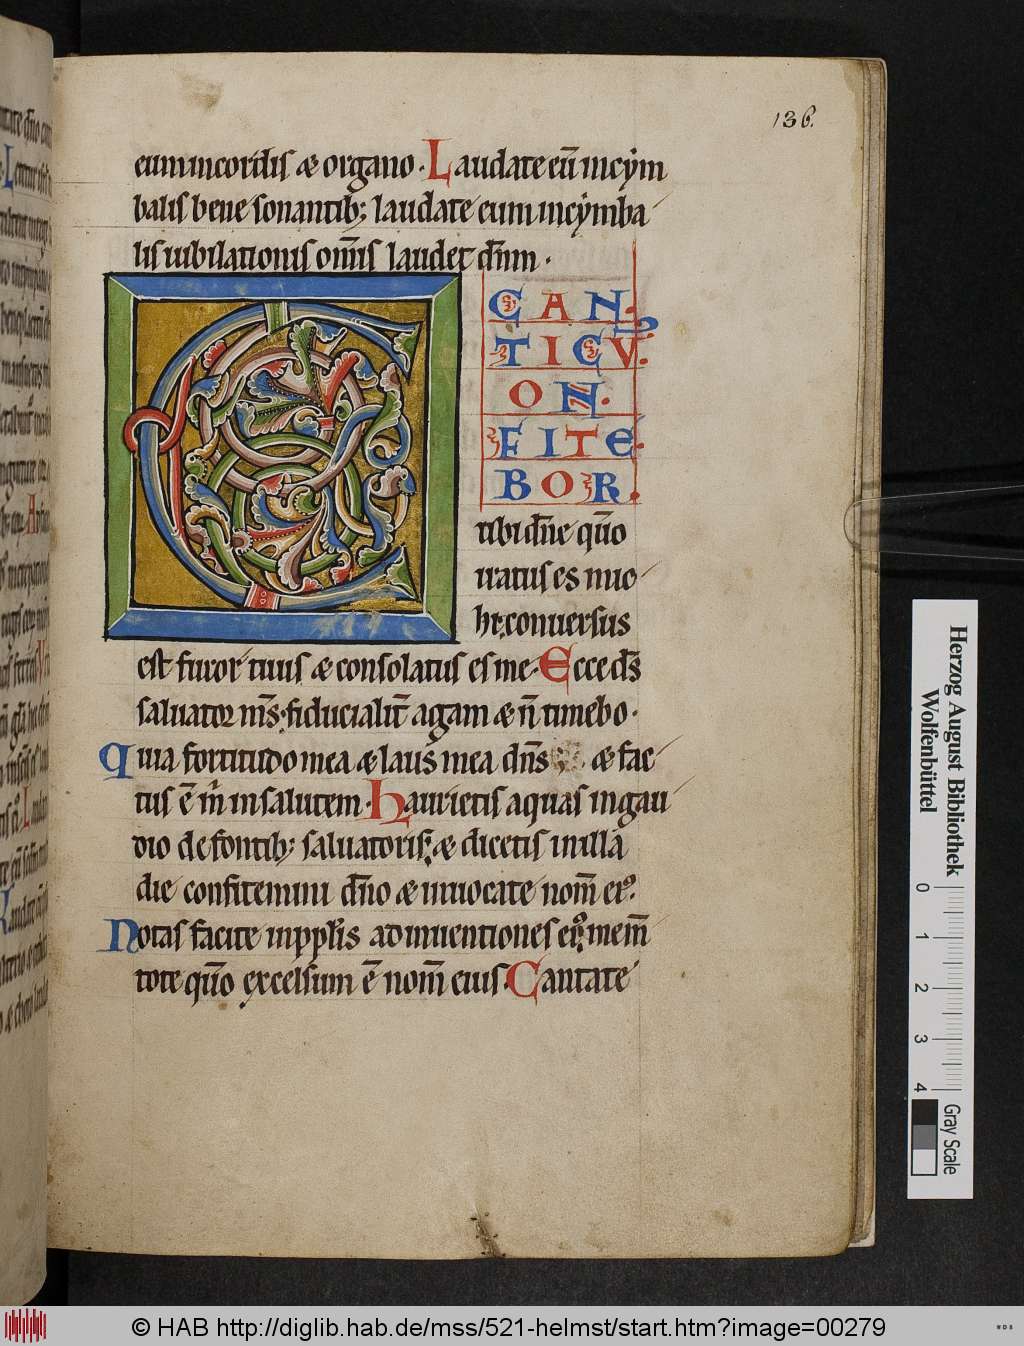 136.
eum in cordis & organo. Laudate eū in cym
balis bene sonantib; laudate eum in cymba
lis iubilationis om̄is laudet dn̄m.
CAN
TICV.
C
ON
FITE
BOR.
tibi dn̄e quō
iratus es mi
hi; conuersus
est furor tuus & consolatus es me. Ecce ds̄
saluator m̄s fiducialit̄ agam & n̄ timebo.
Quia fortitudo mea & laus mea dn̄s & fac
tus ē m̄ in salutem. Haurietis aquas in gau
dio de fontib; saluatoris; & dicetis in illa
die confitemini dn̄o & inuocate nom̄ ei⁹.
Notas facite in ppl̄is adinuentiones ei⁹ mem̄
tote quō excelsum ē nom̄ eius. Cantate
Herzog August Bibliothek
Wolfenbüttel
0 1 2 3 4
Gray Scale
© HAB http://diglib.hab.de/mss/521-helmst/start.htm?image=00279